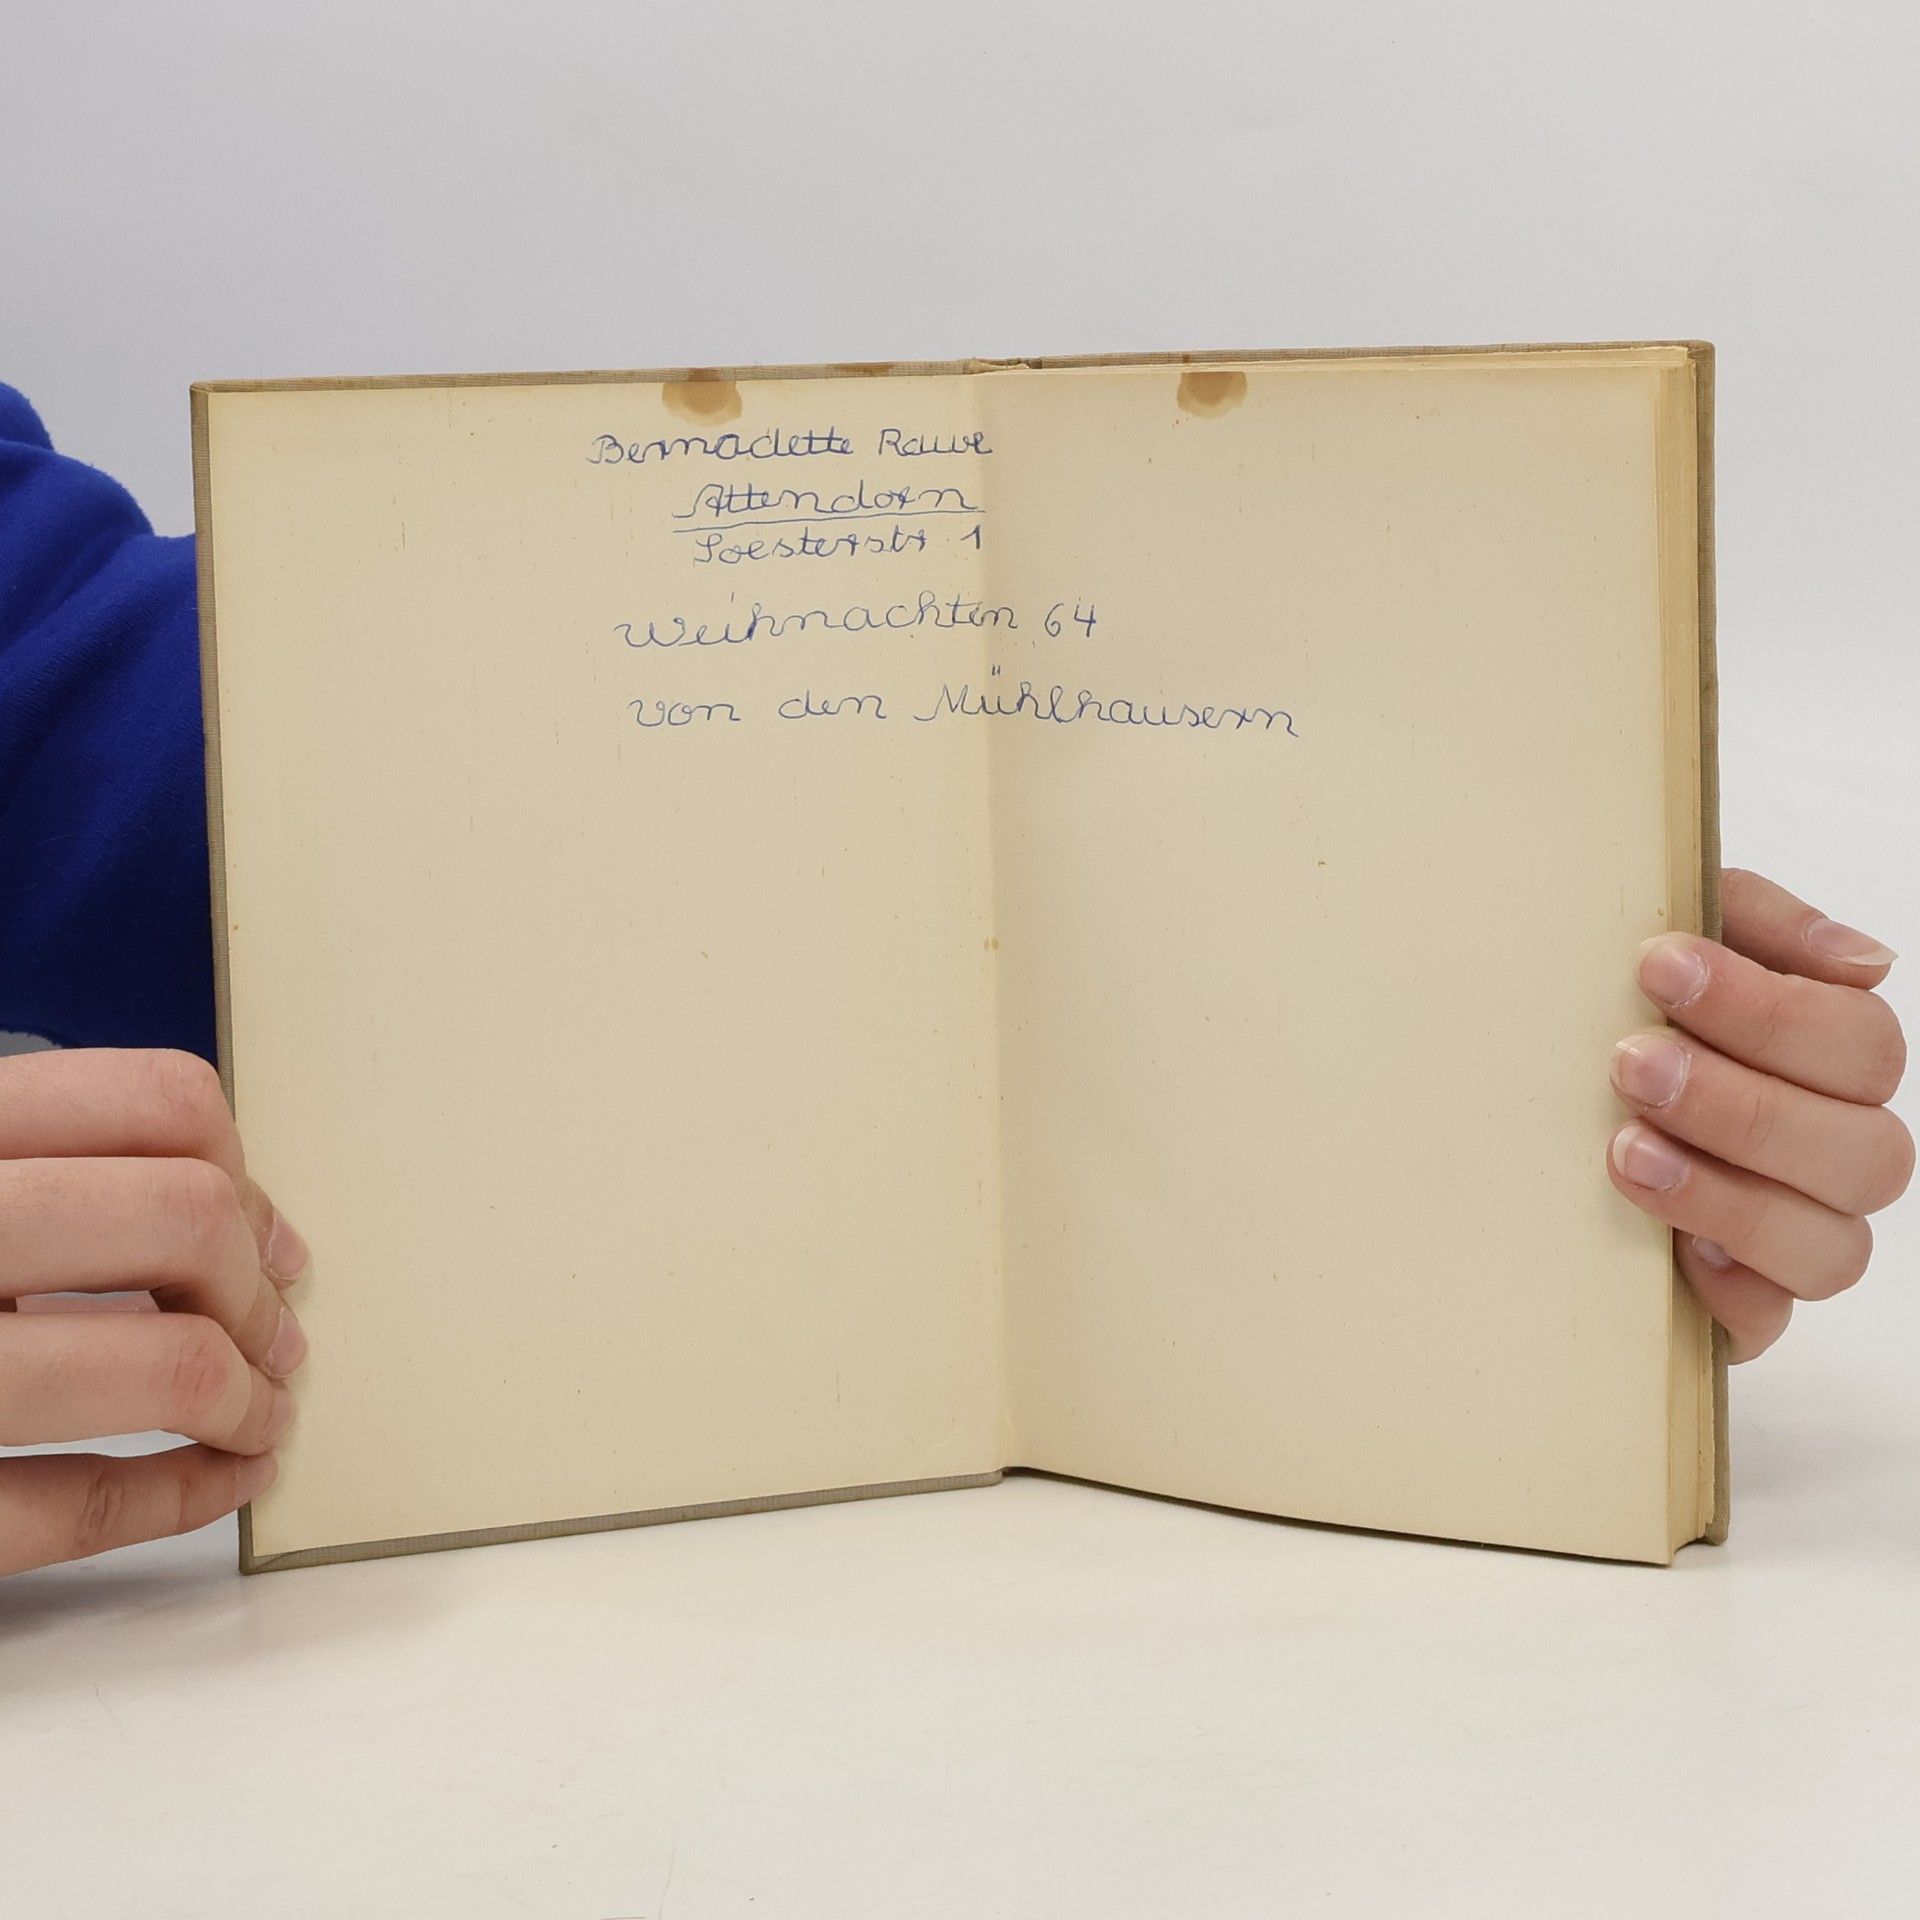 Bernadette Rauve
Attendorn
Soesterstr 1
Weihnachten 64
von den Mühlhausern